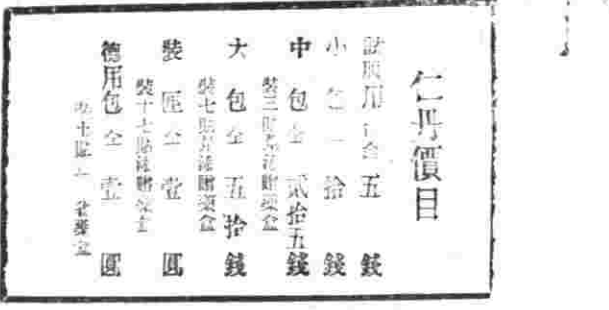 仁丹價目
試服用 金五錢
小包 拾錢
中包金貳拾五錢
裝三貼 贈藥盒
大包金五拾錢
裝七貼 贈藥盒
裝匣金壹圓
裝十七貼 贈藥盒
德用包金壹圓
十貼 藥盒